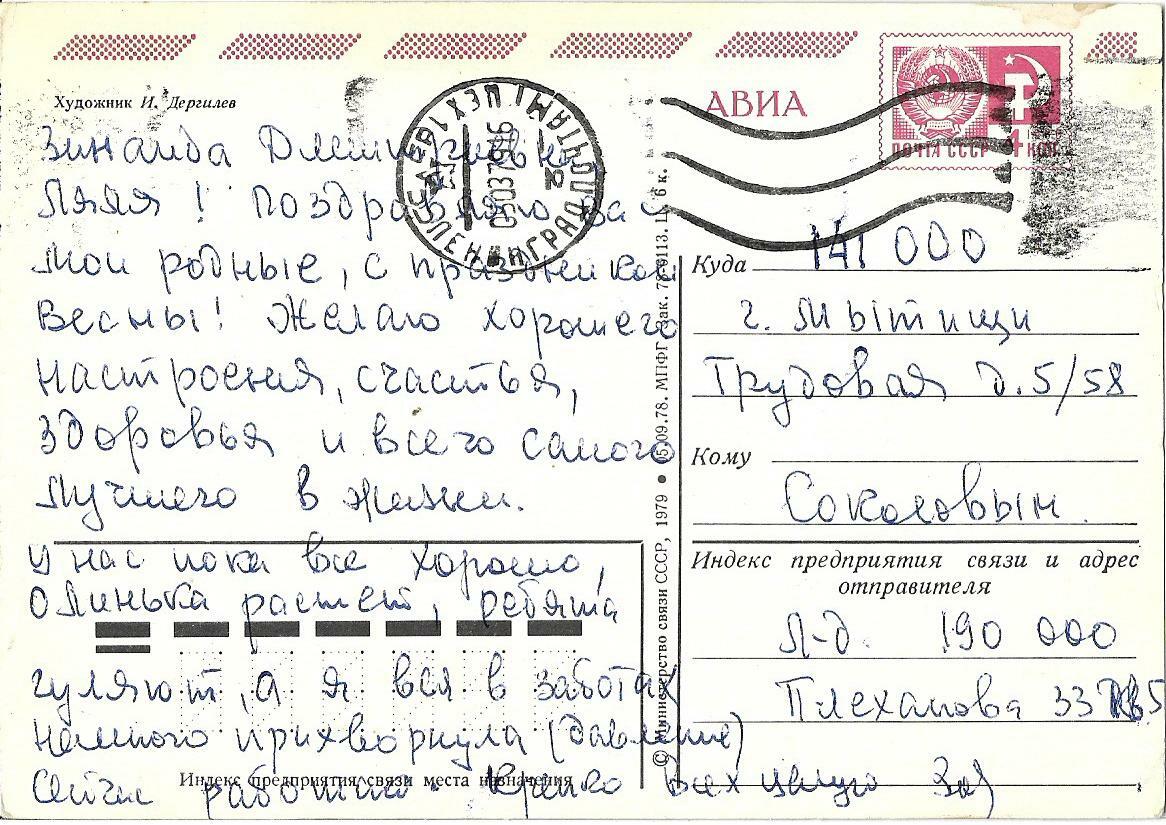 Художник И. Дергилев
АВИА
ПОЧТА СССР 4 КОП.
ЛЕНИНГРАД ПОЧТАМТ
Зинаида
Ляля! Поздравляю вас
мои родные, с праздником
Весны! Желаю хорошего
настроения, счастья,
здоровья и всего самого
лучшего в жизни.
У нас пока все хорошо,
Олинька растет, ребята
гуляют, а я вся в заботах
немного прихворнула (давление)
работаю. Крепко всех целую
Индекс предприятия связи места назначения
© Министерство связи СССР, 1979 ● 05.09.78. МПФГ. Зак. Ц. 6 к.
Куда 141 000
г. Мытищи
Трудовая д. 5/58
Кому
Соколовым
Индекс предприятия связи и адрес
отправителя
Л-д. 190 000
Плеханова 33 кв5